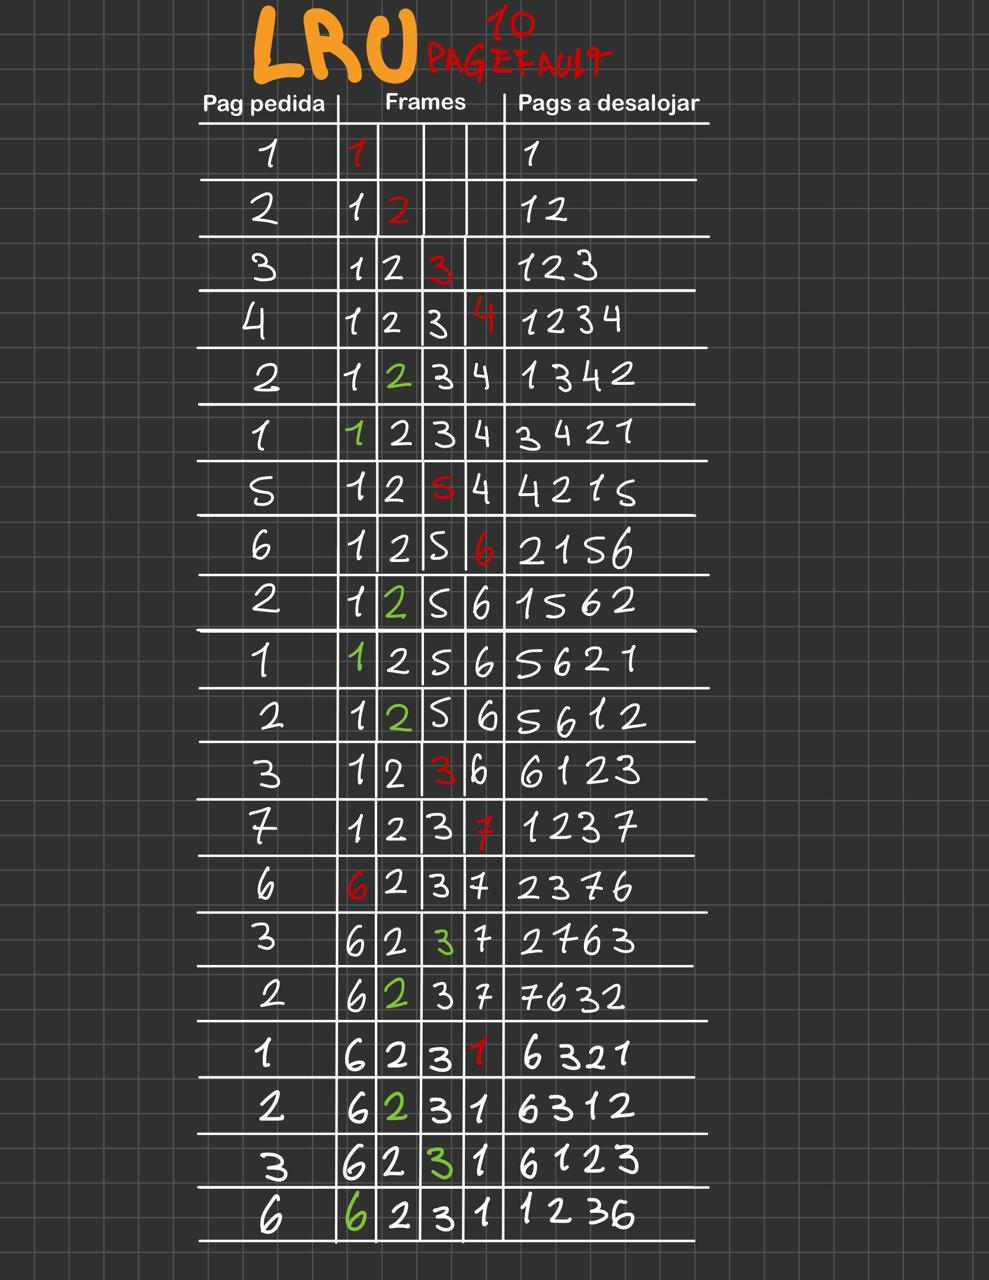 LRU 10
PAGEFAULT
Pag pedida Frames Pags a desalojar
1 1 1
2 1 2 1 2
3 1 2 3 1 2 3
4 1 2 3 4 1 2 3 4
2 1 2 3 4 1 3 4 2
1 1 2 3 4 3 4 2 1
5 1 2 5 4 4 2 1 5
6 1 2 5 6 2 1 5 6
2 1 2 5 6 1 5 6 2
1 1 2 5 6 5 6 2 1
2 1 2 5 6 5 6 1 2
3 1 2 3 6 6 1 2 3
7 1 2 3 7 1 2 3 7
6 6 2 3 7 2 3 7 6
3 6 2 3 7 2 7 6 3
2 6 2 3 7 7 6 3 2
1 6 2 3 1 6 3 2 1
2 6 2 3 1 6 3 1 2
3 6 2 3 1 6 1 2 3
6 6 2 3 1 1 2 3 6